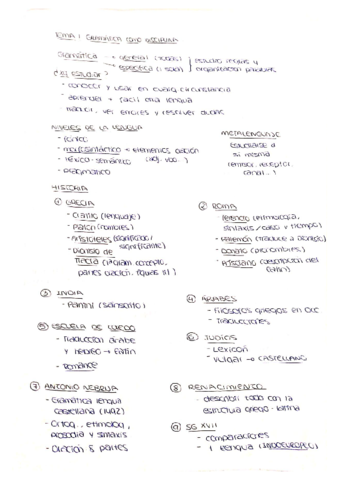 TEMA 1 GRAMÁTICA COMO DISCIPLINA
Gramática → general (todas)
→ específica (1 sola)
estudio lengua y
organización palabras
¿xq estudiar?
- conocer y usar en cualq circunstancia
- aprender + fácil otra lengua
- traducir, ver errores y resolver dudas
NIVELES DE LA LENGUA
- Fónico
- Morfosintáctico = elementos oración
- Léxico-semántico
- Pragmático
METALENGUAJE
estudiarse a
sí misma
(emisor, receptor,
canal...)
HISTORIA
① GRECIA
- Cratilo (lenguaje)
- Platón (nombres)
- Aristóteles (significado/
significante)
- Dionisio de
Tracia (1ª gram. completa,
partes oración,
② ROMA
- Varrón
sintaxis/caso y tiempo)
- Palemón (traduce a Dionisio)
- Donato
- Prisciano (descripción del
latín)
③ INDIA
- Panini (sánscrito)
④ ÁRABES
- Filósofos griegos en Occ
- Traducciones
⑤ ESCUELA DE TOLEDO
- Traducción árabe
y hebreo → latín
- Romance
⑥ JUDÍOS
- Lexicón
- Vulgar → CASTELLANO
⑦ ANTONIO NEBRIJA
- Gramática lengua
castellana (1492)
- Ortog., etimolog.,
prosodia y sintaxis
- Oración 8 partes
⑧ RENACIMIENTO
- describir todo con la
estructura grego-latina
⑨ SG XVII
- comparaciones
- 1 lengua (INDOEUROPEO)